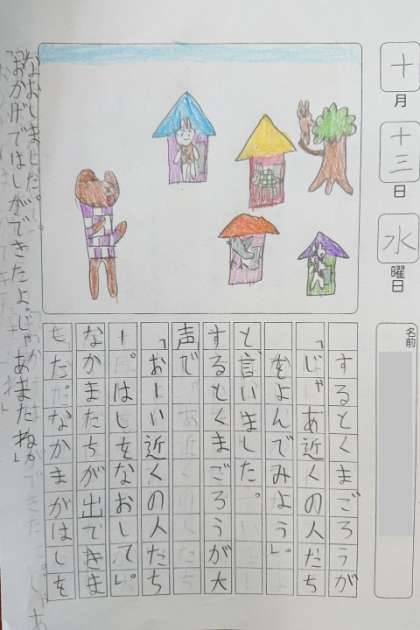 十月
十三日
水曜日
名前
するとくまごろうが
「じゃあ近くの人たち
をよんでみよう」。
と言いました。
するとくまごろうが大
声で
「おーい近くの人たち
ー。はしをなおして」。
なかまたちが出てきま
した。なかまがはしを
なおしました。
「おかげではしができたよ、じゃあまたね。」